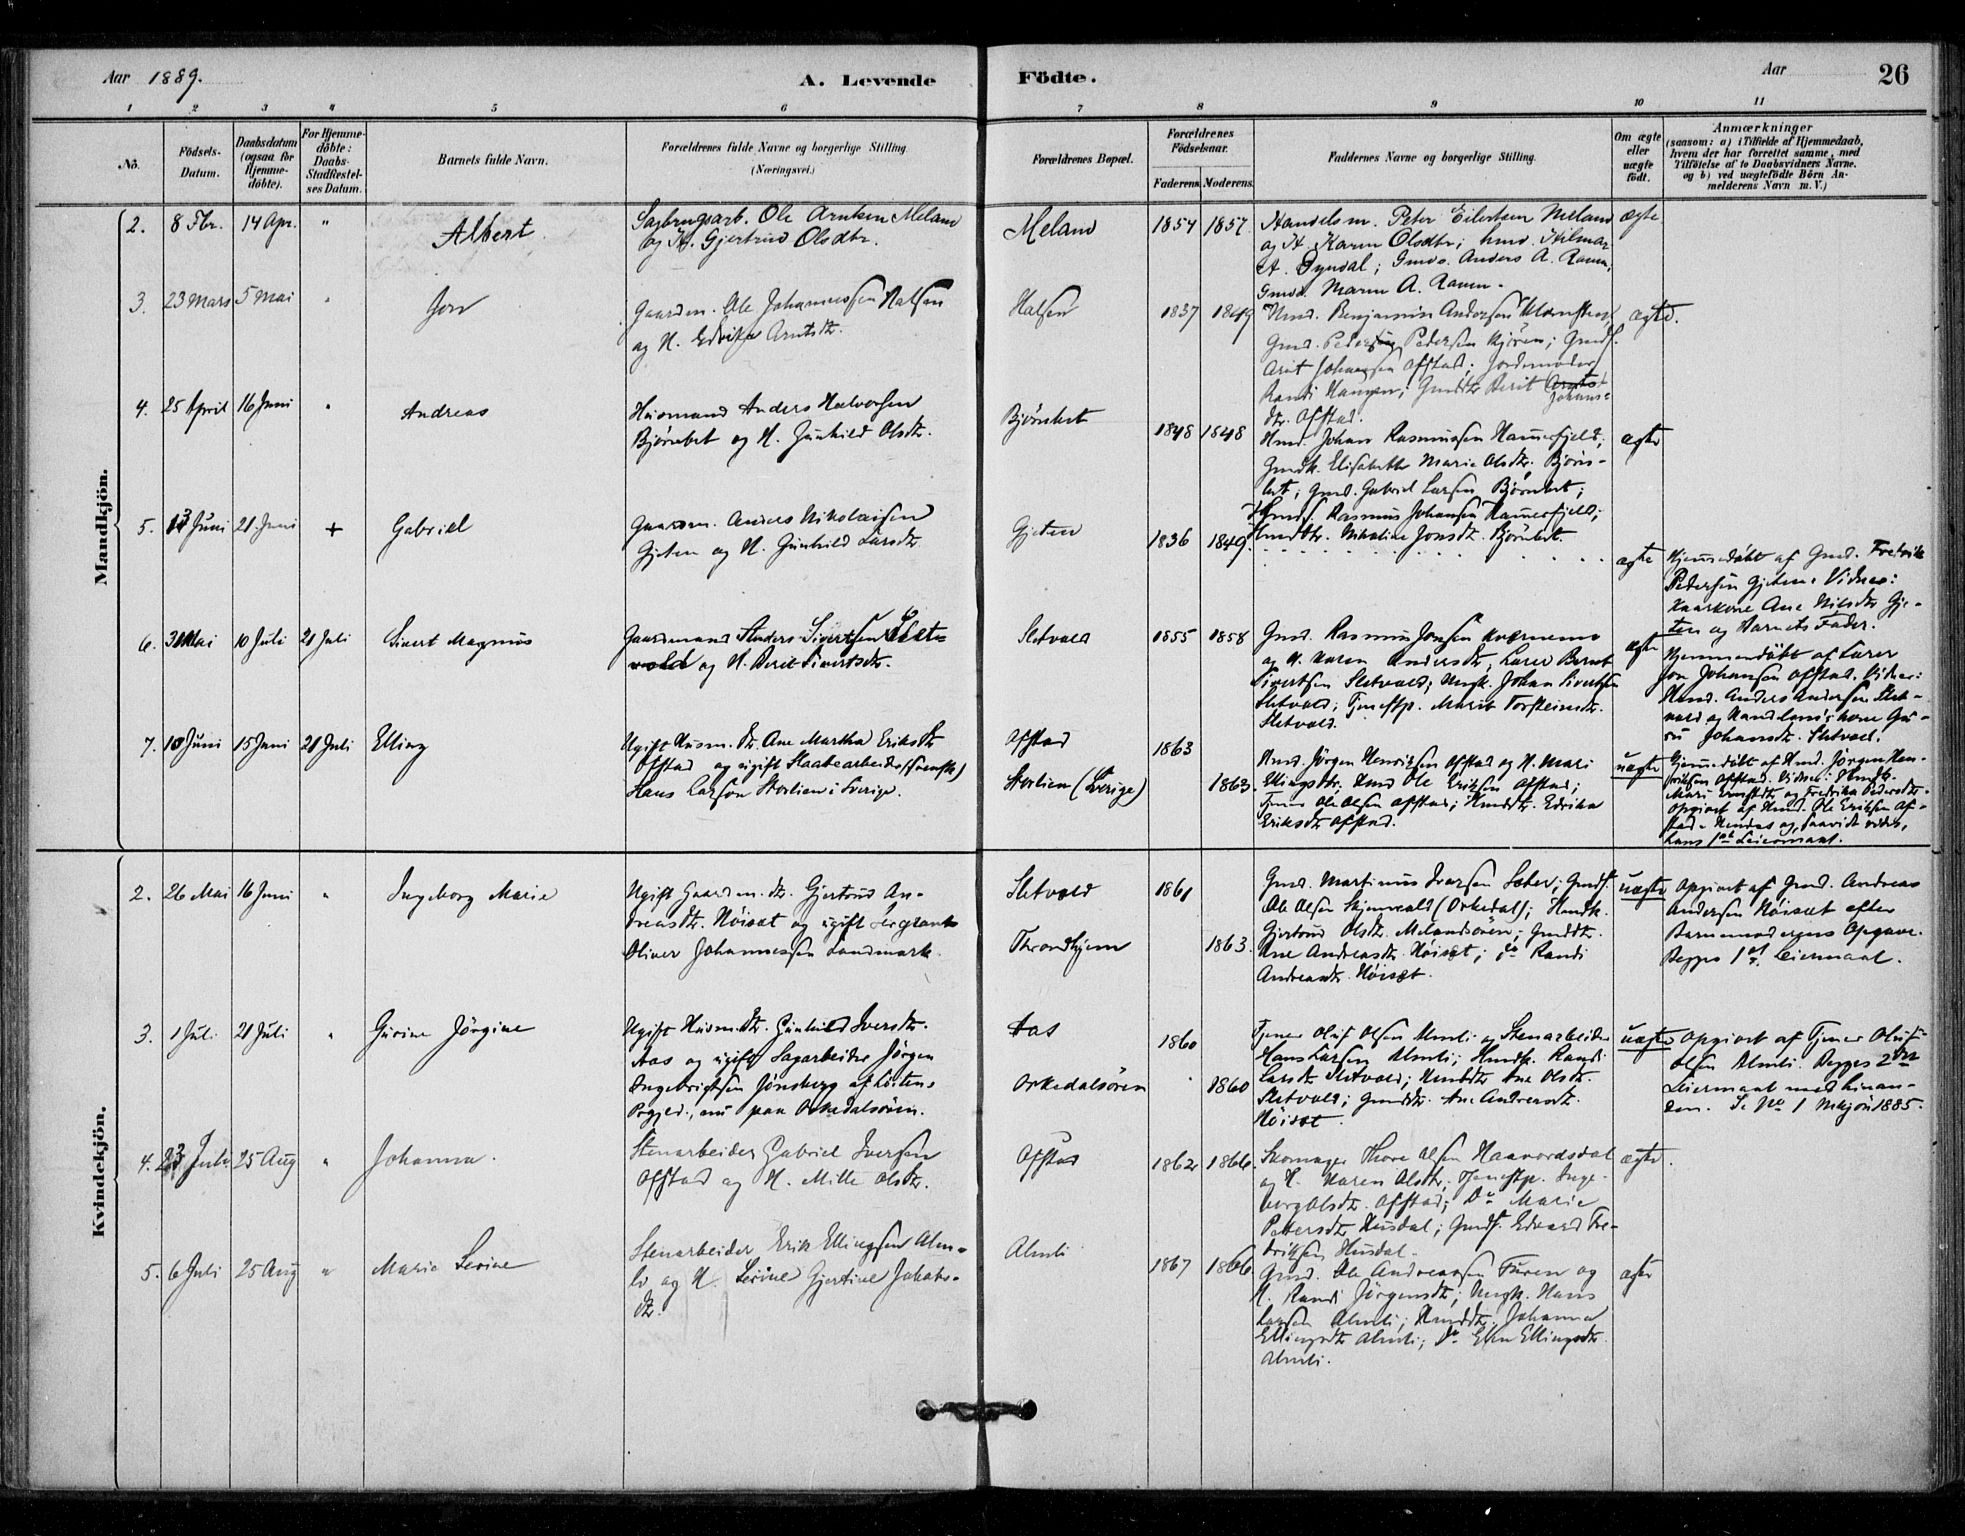 Aar 1889.
A. Levende Födte.
Aar 26
1 2 3 4 5 6 7 8 9 10 11
No.
Födsels-Datum.
Daabsdatum (ogsaa for Hjemme-döbte).
For Hjemme-döbte: Daabs-Stadfæstel-ses Datum.
Barnets fulde Navn.
Forældrenes fulde Navne og borgerlige Stilling.
(Næringsvei.)
Forældrenes Bopæl.
Forældrenes Födselsaar.
Faderens. Moderens.
Faddernes Navne og borgerlige Stilling.
Om ægte eller uægte födt.
Anmærkninger
(saasom: a) i Tilfælde af Hjemmedaab, hvem der har forrettet samme, med Tilföielse af to Daabsvidners Navne. og b) ved uægtefödte Börn An-melderens Navn m. V.)
Mandkjön.
2. 8 Fbr. 14 Apr. " Albert
Sagbrugsarb. Ole Arntsen Meland
og H. Gjertrud Olsdtr.
Meland 1854 1857.
Handelsm. Peter Eilertsen Meland
og H. Karen Olsdtr; hmd. Hilmar
A. Dyndal; Gmds. Anders A. Ramn,
Gmd. Maren A. Ramn.
ægte
3. 23 Mars 5 Mai " Jon
Gaardm. Ole Johannessen Halsen
og H. Edvika Arntsdtr.
Halsen 1837 1849
Hmd. Benjamin Andersen
Gmd. Peder Pedersen Kjøren; Gmds.
Arit Johansen Afstad; Jordemoder
Randi Haugen; Gmddtr Berit Johans-
dtr. Afstad.
ægte.
4. 25 April 16 Juni " Andreas
Husmand Anders Halvorsen
Bjørnbet og H. Gunhild Olsdtr.
Bjørnbet 1848 1848
Hmd. Johan Rasmussen Hammerfjeld;
Gmdk. Elisabeth Marie Olsdtr. Bjørn-
bet; Gmd. Gabriel Larsen Bjørnbet;
Hmds. Rasmus Johansen Hammerfjeld;
Hmddtr. Nikoline Jonsdtr. Bjørnbet
ægte
5. 13 Juni 21. Juni + Gabriel
Gaardm. Anders Nikolaisen
Gjeten og H. Gunhild Larsdtr
Gjeten 1836 1849.
ægte
Hjemmedøbt af Gmd. Fredrik
Pedersen Gjeten. Vidner:
Kaarkone Ane Nilsdtr Gje-
ten og Barnets Fader.
6. 31 Mai 10 Juli 21 Juli Sivert Magnus
Gaardmand Anders Sivertsen Slet-
vold og H. Berit Sivertsdtr.
Sletvold 1855 1858
Gmd. Rasmus Jonsen Kværnmo
og H. Karen Andersdtr; Lærer Bernt
Sivertsen Sletvold; Ungk. Johan Sivertsen
Sletvold; Tjenestp. Marit Torsteinsdtr.
Sletvold.
ægte
Hjemmedøbt af Lærer
Jon Johansen Afstad. Vidner:
Hmd. Anders Andersen Slet-
vold og Handelsm.kone Gu-
ru Johansdtr. Sletvold.
7. 10 Juni 15 Juni 21 Juli Elling
Ugift Husm. dtr. Ane Martha Eriksdtr
Afstad og ugift Slaabearbeider (svensk)
Hans Larson Storlien i Sverige.
Afstad 1863
Storlien (Sverige) 1863.
Hmd. Jörgen Henriksen Afstad og H. Mari
Ellingsdtr; Hmd Ole Eriksen Afstad;
Tjener Ole Olsen Afstad; Hmddtr. Edvika
Eriksdtr Afstad.
uægte
Hjemmedøbt af Hmd. Jørgen Hen-
riksen Afstad. Vidner: Hmdk.
Mari Ernstdtr og Fredrika Pedersdtr.
Opgivet af Hmd. Ole Eriksen Af-
stad. Hendes og, saavidt vides,
hans 1ste Leiermaal.
Kvindekjön.
2. 26 Mai 16 Juni " Ingeborg Marie
Ugift Gaardm. dtr. Gjertrud An-
dreasdtr. Höisæt og ugift Sergeant
Oliver Johannessen Landmark.
Sletvold 1861
Throndhjem 1863.
Gmd. Martinus Iversen Sæter; Gmds.
Ole Olsen Skjenvald (Orkedal); Hmdk.
Gjertrud Olsdtr. Melandsören; Gmddtr.
Ane Andreasdtr. Höisæt; do Randi
Andreasdtr. Höisæt.
uægte
Opgivet af Gmd. Andreas
Andersen Höisæt efter
Barnemoderens Opgave.
Begges 1ste Leiermaal.
3. 1 Juli 21 Juli " Gurine Jörgine
Ugift Husm. dtr. Gunhild Iversdtr.
Aas og ugift Sagarbeider Jørgen
Ingebrigtsen Jønsberg af Løtens
Prgjld., nu paa Orkedalsören.
Aas 1860
Orkedalsören 1860
Tjener Oluf Olsen Almli og Stenarbeider
Hans Larsen Almli; Hmdk. Randi
Larsdtr Sletvold; Hmddtr Ane Olsdtr.
Sletvold; Gmddtr. Ane Andreasdtr.
Höisæt.
uægte
Opgivet af Tjener Oluf
Olsen Almli. Begges 2det
Leiermaal med hinan-
den. Se No 1 Mkjøn 1885.
4. 23 Juli 25 Aug " Johanna.
Stenarbeider Gabriel Iversen
Afstad og H. Mille Olsdtr.
Afstad 1862 1866.
Skomager Thore Olsen Haavordsdal
og H. Karen Olsdtr; Tjenestp. Inge-
borg Olsdtr. Afstad; do Marie
Pettersdtr Husdal; Gmds. Edvard Fre-
driksen Husdal.
ægte.
5. 6 Juli 25 Aug " Marie Serine
Stenarbeider Erik Ellingsen Alm-
li og H. Serine Gjertine Johans-
dtr.
Almli 1867 1866
Gmd. Ole Andreassen Furen og
H. Randi Jörgensdtr; Ungk. Hans
Larsen Almli; Hmddtr. Johanna
Ellingsdtr Almli; do Ellen Ellingsdtr.
Almli.
ægte